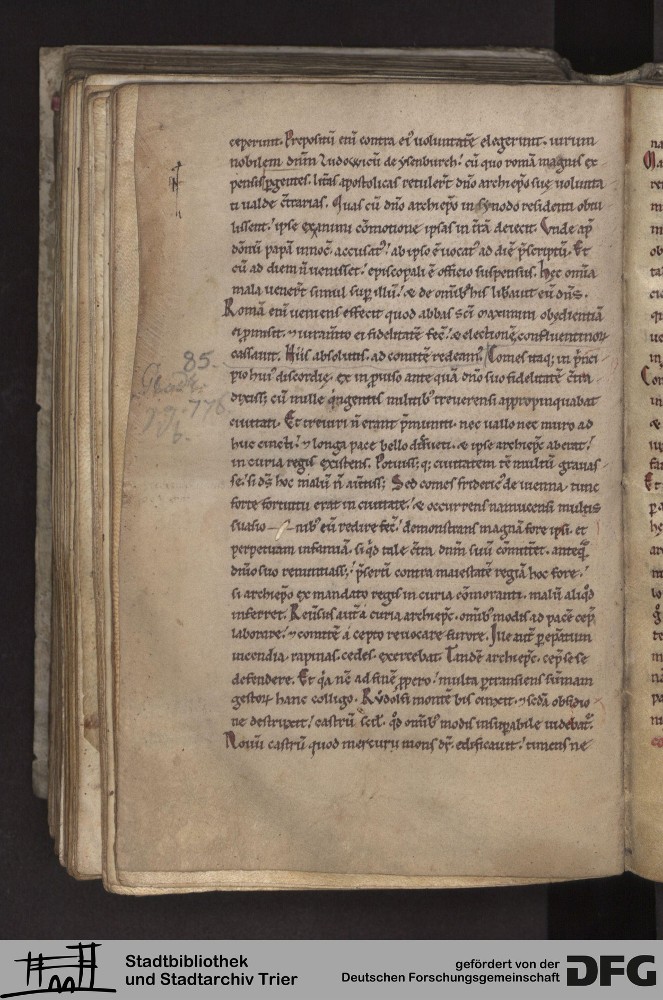 ceperunt. Prepositū eni contra ei' uoluntatē elegerunt. uirum
nobilem dnm̄ Ludowicū de ysenburch. cū quo romā magnis ex-
pensis ꝑgentes. litt̄as apostolicas retuler̄t dn̄o archiepō suę uolunta
ti ualde cōtrarias. Quas cū dn̄o archiepō in synodo residenti obtu
lissent. ipse ex animi cōmotione ipsas in t̄rā deiecit. Vnde ap̄
domnū papā innoc̄. accusat'. ab ipso euocat' ad diē p̄scriptū. Et
cū ad diem n̄ uenisset. episcopali ē officio suspensus. Hec om̄ia
mala uener̄t simul suꝑ illū. & de omib' his libauit eū dn̄s.
Romā eni ueniens effecit quod abbas sc̄i maximini obedientiā
ei ꝓmisit. & iuratiuo ei fidelitatē fec̄. & electionē confluentinoꝝ
cassauit. Hiis absolutis. ad comitē redeam'. Comes itaq; in p̄nci
pio hui' discordie. ex inꝓuiso ante quā dn̄o suo fidelitatē cōtra
dixiss; cū mille q̄ngentis militib' treuerensi appropinquabat
ciuitati. Et treuiri n̄ erant p̄muniti. nec uallo nec muro ad
huc cincti. & longa pace bello dissueti. & ipse archiepc̄ aberat.
in curia regis existens. Potuiss; q; ciuitatem tē multū grauas-
se. si ds̄ hoc malū n̄ auertiss; Sed comes frideric' de uienna. tunc
forte fortuitu erat in ciuitate. & occurrens namucensi multis
suasio nib' eū redire fec̄. demonstrans magnā fore ipsi. et
perpetuam infamiā. si q̄d tale cōtra dnm̄ suū cōmittet. anteq̄
dn̄o suo renuntiass;. p̄sertī contra maiestatē regiā hoc fore.
si archiepō ex mandato regis in curia cōmoranti. malū aliq̄d
inferret. Reūsus aut̄ a curia archiepc̄. omib' modis ad pacē cep̄
laborare. & comitē a cepto reuocare furore. Ille aut̄ ꝑ epatum
incendia. rapinas. cedes. exercebat. Tandē archiepc̄. cep̄ se se
defendere. Et q̄a nē ad finē ꝓpero. multa ꝑtransiens sūmam
gestoꝝ hanc colligo. Rudolfi montē bis cinxit. & sc̄da obsidio
ne destruxit. castrū scil. q̄d omib' modis insuꝑabile uidebat'.
Nouū castrū quod mercurij mons dr̄. edificauit. timens ne
85.
776
b.
Stadtbibliothek
und Stadtarchiv Trier
gefördert von der
Deutschen Forschungsgemeinschaft
DFG